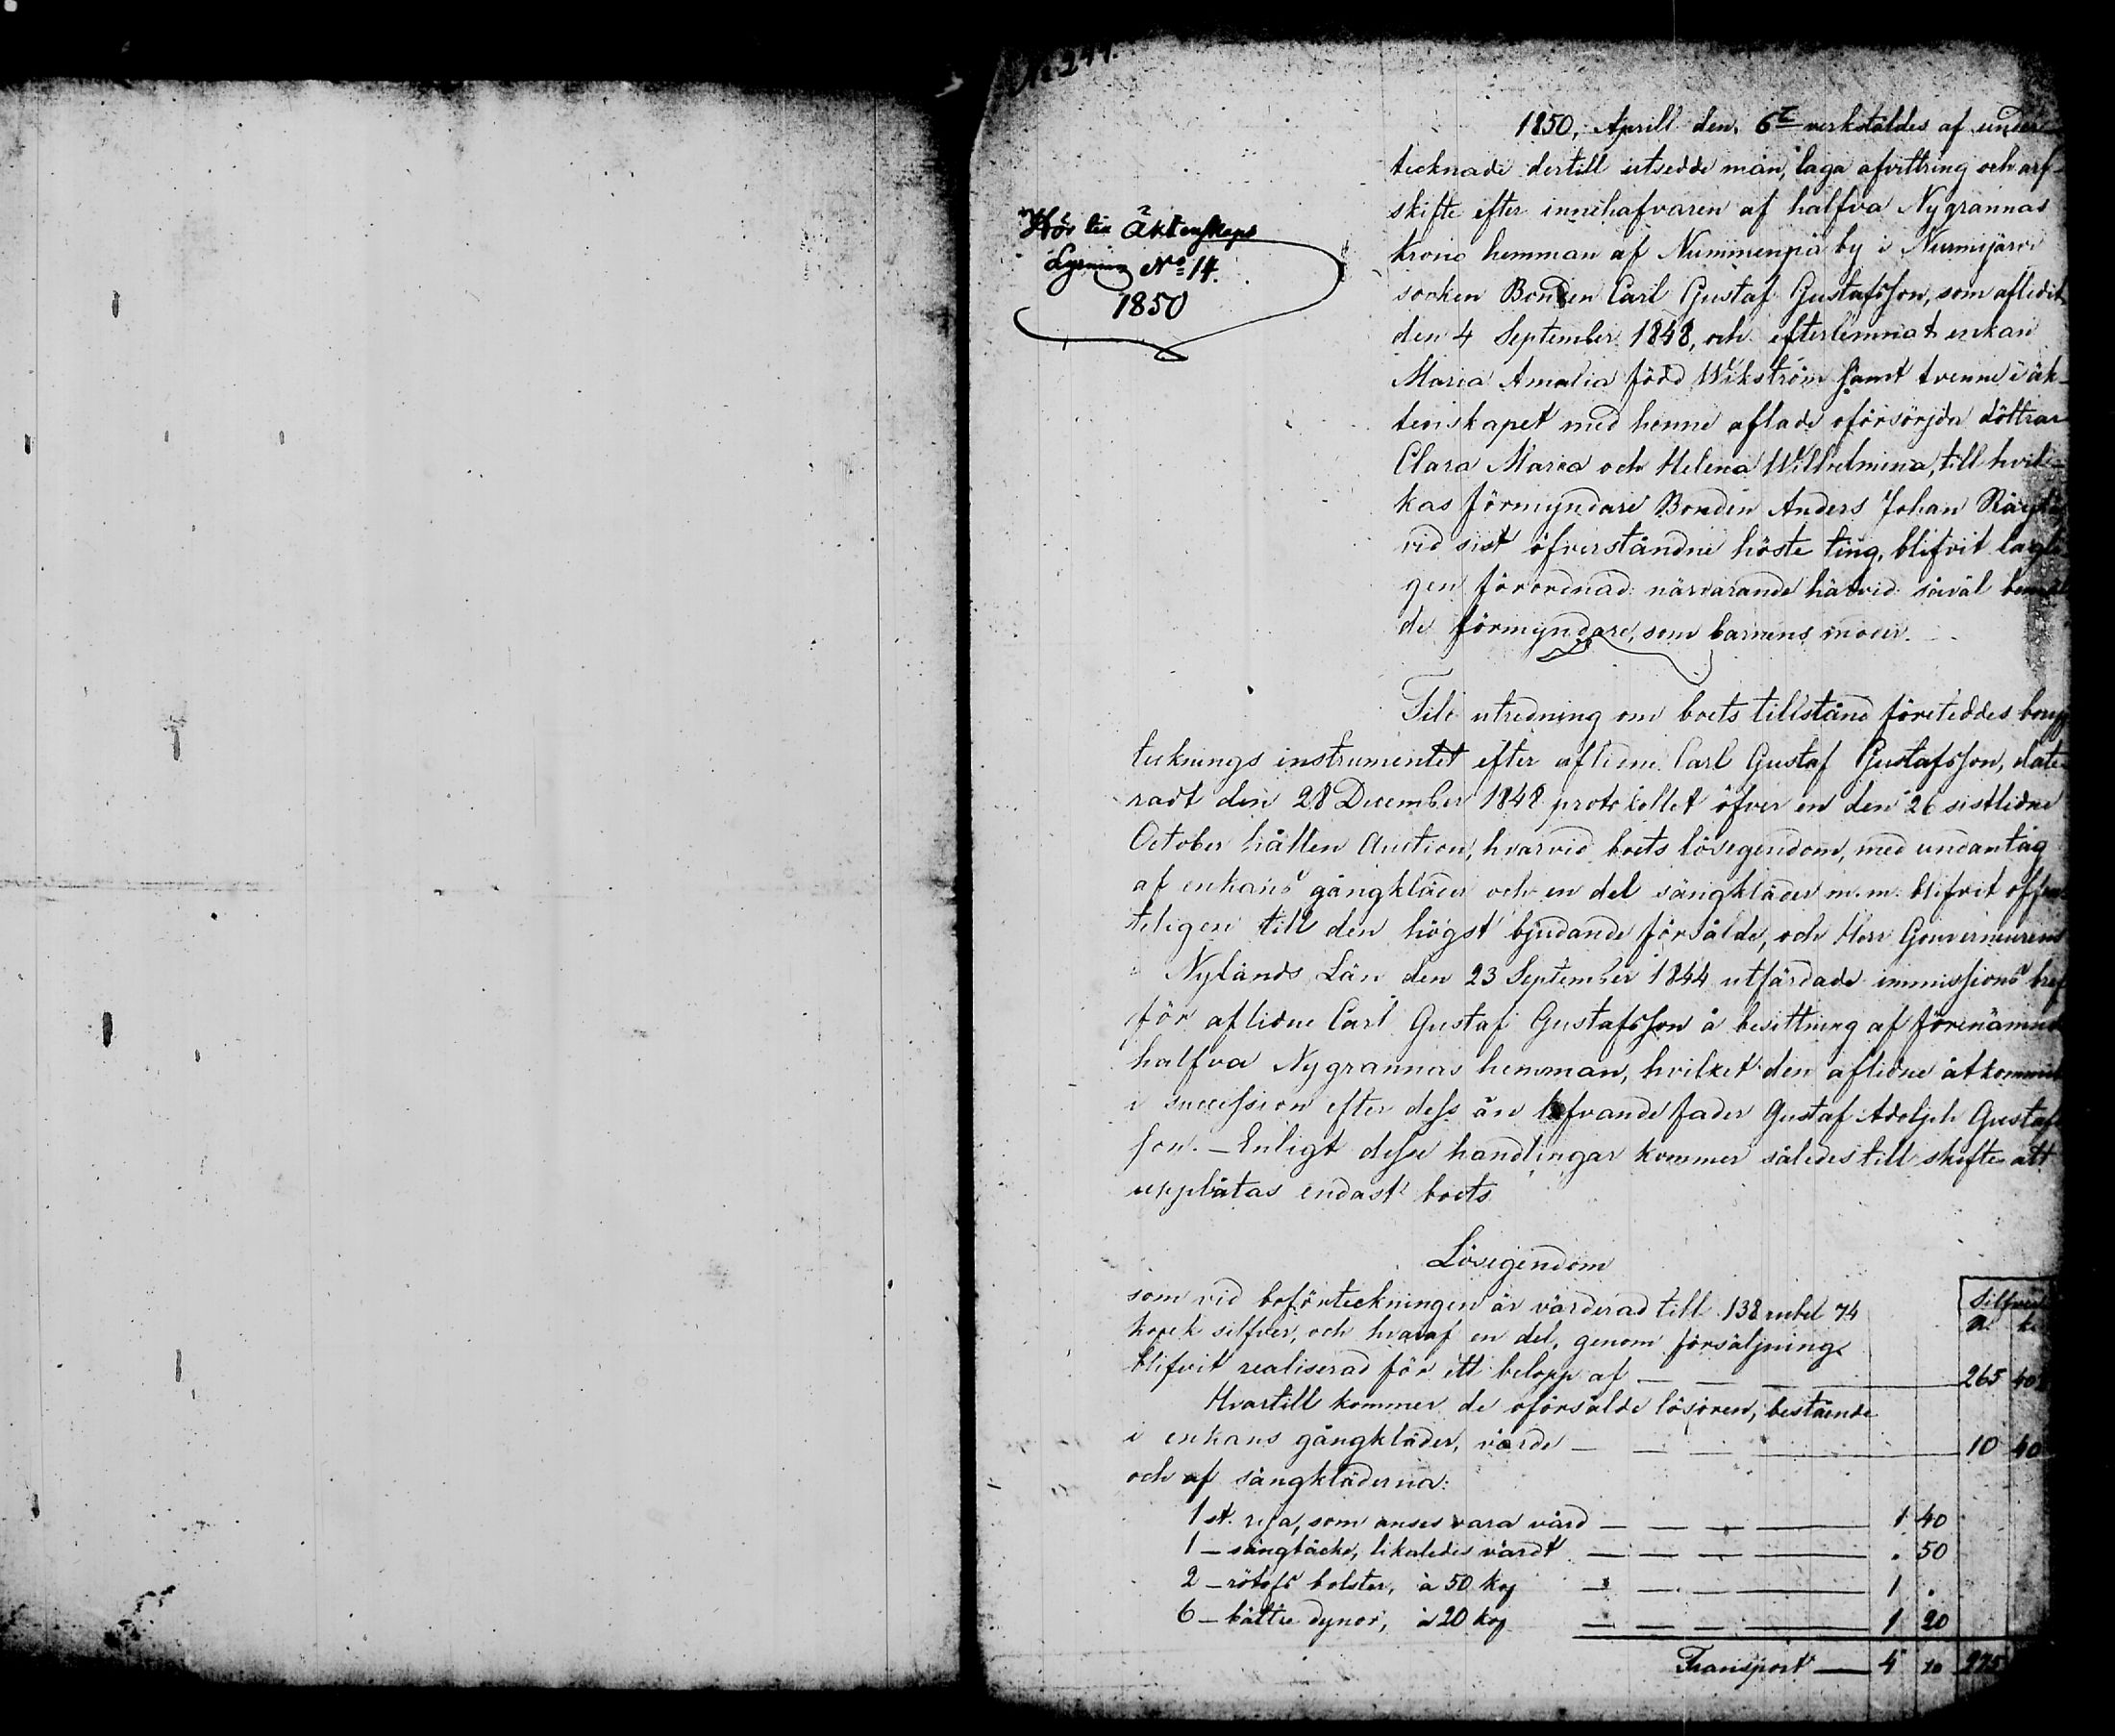 N:o 244.
Hör till Äktenskaps
Lysning No 14.
1850
1850, Aprill den 6te verkstäldes af under-
tecknade dertill utsedde män, laga afvittring och arf-
skifte efter innehafvaren af halfva Nygrannas
krono hemman af Nummenpää by i Nurmijärvi
socken Bonden Carl Gustaf Gustafsson, som aflidit
den 4 September 1848, och efterlemnat enkan
Maria Amalia född Wikström samt tvenne i äk-
tenskapet med henne aflade oförsörjda döttrar
Clara Maria och Helena Wilhelmina, till hvil-
kas förmyndare Bonden Anders Johan
vid sist öfverståndne höste ting, blifvit lagli-
gen förordnad: närvarande härvid såväl bemäl-
de förmyndare, som barnens moder.
Till utredning om boets tillstånd företeddes boupp-
tecknings instrumentet efter aflidne Carl Gustaf Gustafsson, date-
radt den 28 December 1848 protocollet öfver en den 26 sistlidne
October hållen Auction, hvarvid boets lösegendom, med undantag
af enkans gångkläder och en del sängkläder m. m. blifvit offen-
teligen till den högst bjudande försålde, och Herr Gouverneurens
i Nylands Län den 23 September 1844 utfärdade immissions bref
för aflidne Carl Gustaf Gustafsson å besittning af förenämnde
halfva Nygrannas hemman, hvilket den aflidne åtkommit
i succession efter dess än lefvande fader Gustaf Adolph Gustaf-
son. – Enligt desse handlingar kommer således till skifte att
upplåtas endast boets
Lösegendom
som vid boförteckningen är värderad till 138 rubel 74
kopek silfver, och hvaraf en del, genom försäljning
blifvit realiserad för ett belopp af — — — 265 40
Silfver
R. k.
Hvartill kommer de oförsålde lösören, bestående
i enkans gångkläder, värde — — — 10 40
och af sängkläderna:
1 st. rya, som anses vara värd — — — 1 40
1 – sängtäcke, likaledes värdt — — — . 50
2 – bolster, à 50 kop — — — 1 .
6 – bättre dynor, à 20 kop — — — 1 20
Transport — 4 10 275